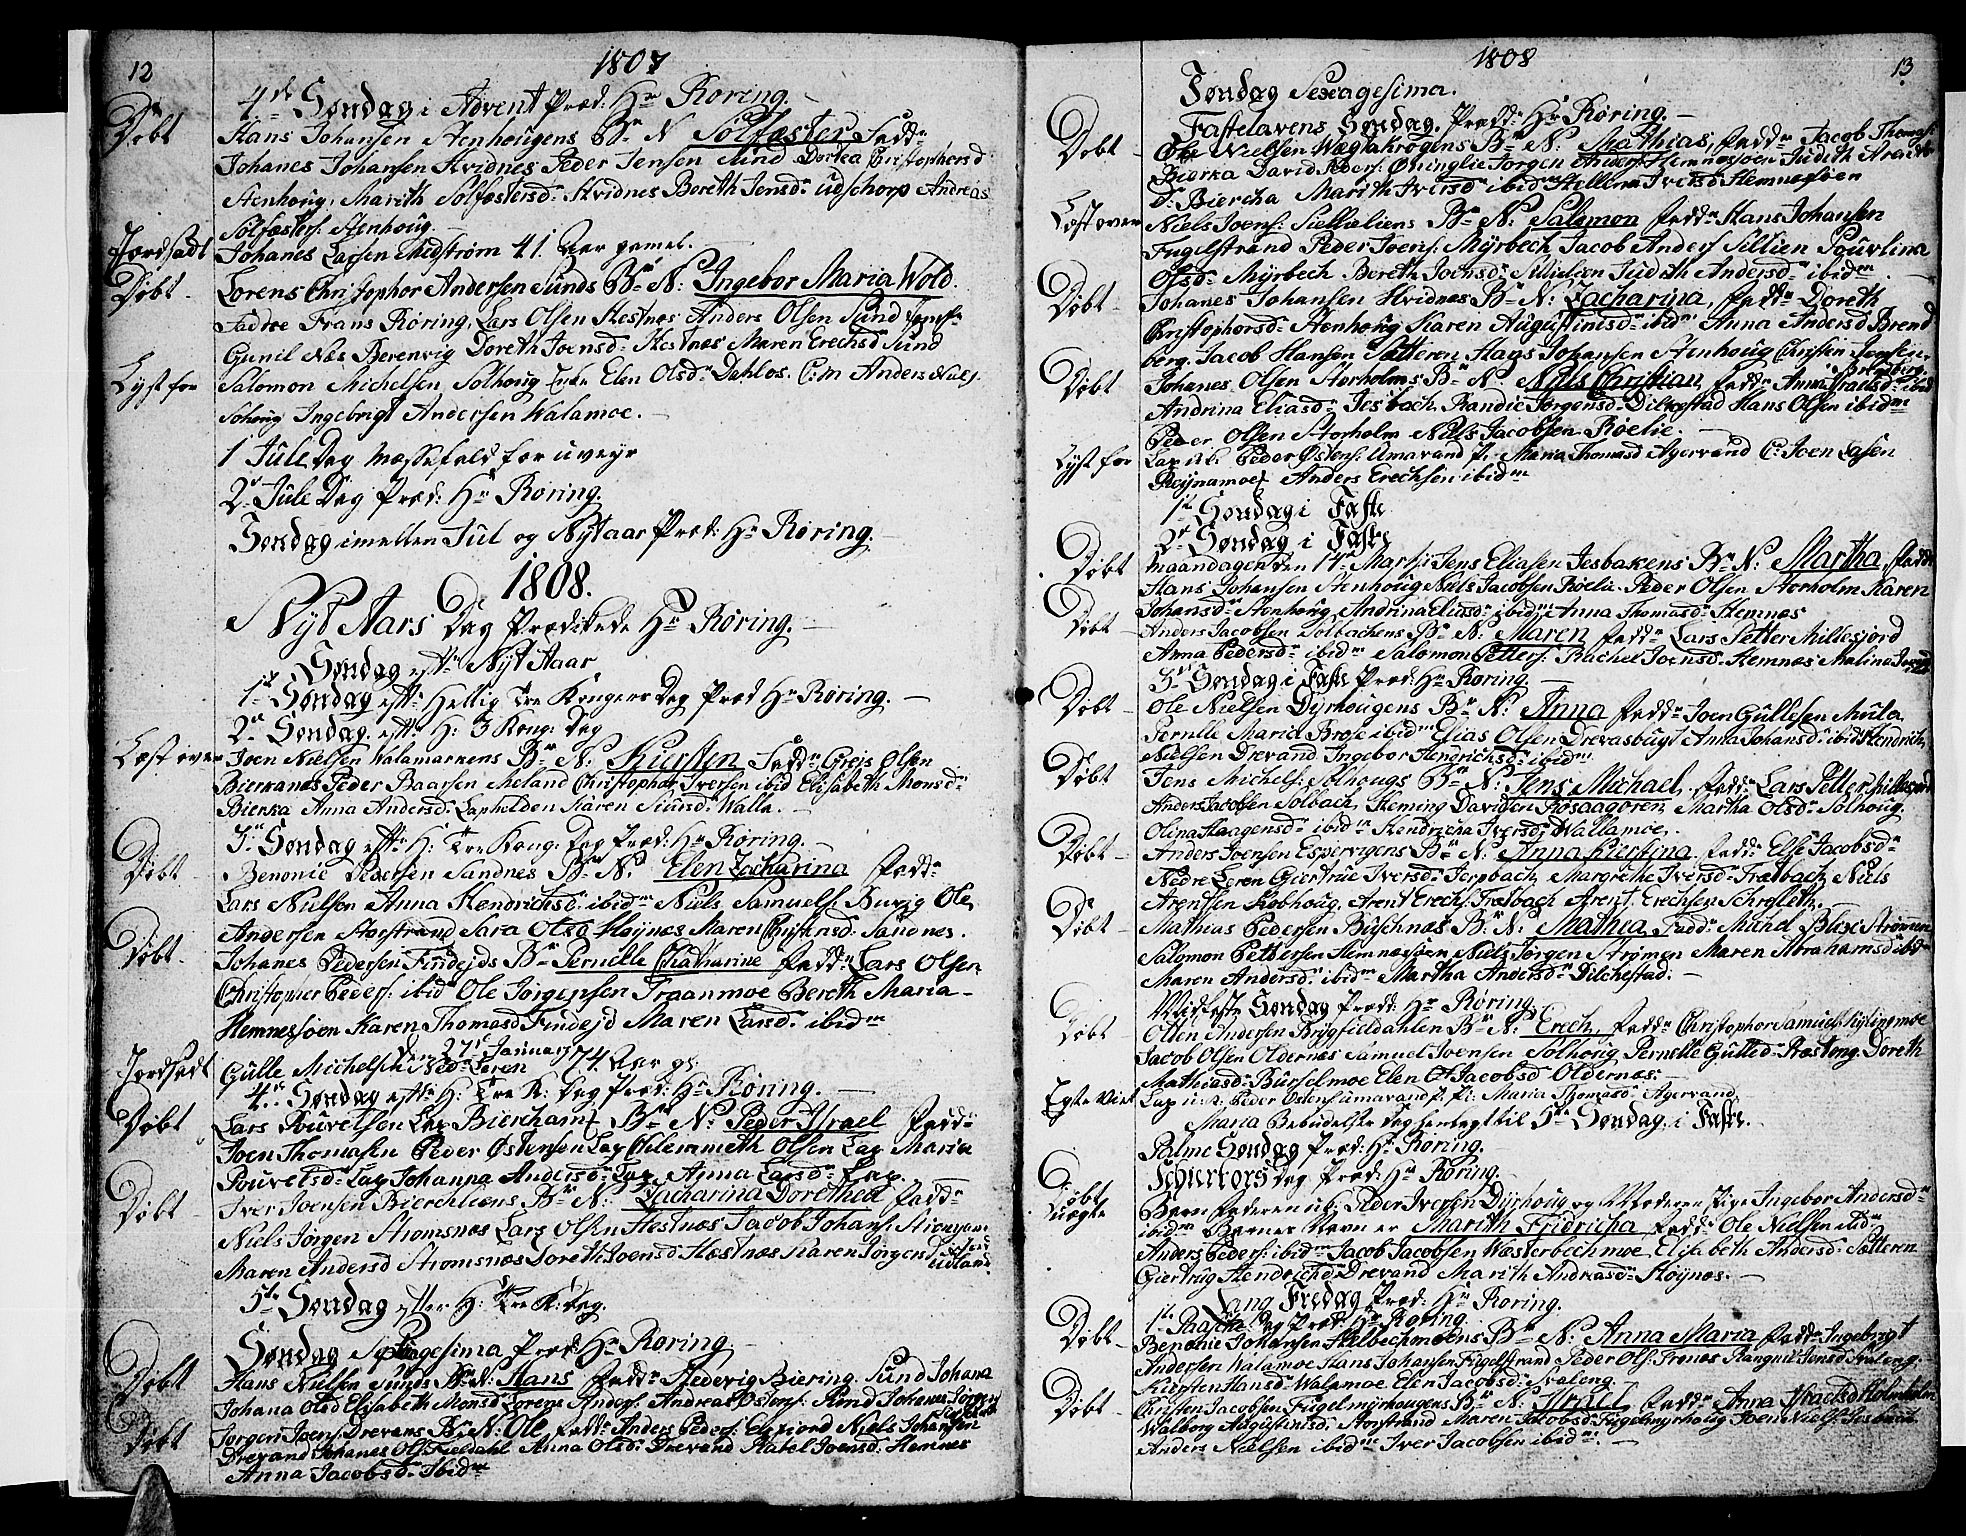 12
1807
4de Søndag i Advent Præd: Hr Røring.
Døbt
Hans Johansen Stenhougens Br N Solfæster Fadd:
Johanes Johansen Hvidnes Peder Jensen Sund Dortea Christophersd
Stenhoug, Marith Solfæstersd: Hvidnes Bereth Jensd: Andreas
Solfæsters: Stenhoug.
Jordfædt
Johanes Larsen Midstrøm 41 Aar gamel.
Døbt
Lorens Christophor Andersen Sunds Br N: Ingebor Maria Wold.
Faddre Frans Røring, Lars Olsen Hestnes Anders Olsen Sund
Gunil Næs Berenvig Doreth Joensd: Hestnæs Maren Erechsd Sund
Lyst for
Salomon Michelsen Solhoug Enke Elen Olsd: Dahlos. C:m Anders Niels.
Solhoug Ingebrigt Andersen Walamoe.
1 Jule Dag Messefald for uveyr
2 Jule Dag Præd: Hr Røring.
Søndag imellem Jul og Nytaar Præd: Hr Røring.
1808.
Nyt Aars Dag Prædikede Hr Røring.
Søndag efter Nyt Aar
1te Søndag eftr Hellig Tre Kongers Dag Præd Hr Røring.
2n Søndag eftr H: 3 Kong: Dag
Læst over
Joen Nielsen Walamarkens Br N: Kiersten Fadd: Greis Olsen
Bierkanes Peder Baarsen Meland Christophor Iversen ibid Elisabeth Monsd:
Bierka Anna Andersd: Laphelden Karen Siursd: Walla.
3n Søndag eftr H: Tre Kong: Dag Præd: Hr Røring.
Døbt
Benonie Pedersen Sandnes Br N: Elen Zacharina Fadd:
Lars Nielsen Anna Hendrichsd: ibidm Niels Samuels: Buvig Ole
Andersen Storstrand Sara Olsd Høynæs Maren Christensd: Sandnes.
Døbt
Johanes Pedersen Findejds Br Pernelle Chatharine Fadd: Lars Olsen
Christopher Peders: ibid Ole Jørgensen Traanmoe Bereth Maria
Hemnessøen Karen Thomasd Findejd Maren Larsd: ibidm
den 27 Januarj
Jordfædt
Gulle Michelsen Ned: Leren 74 Aar gl.
4n Søndag eftr H: Tre K: Dag Præd: Hr Røring.
Døbt
Lars Pouvelsen Lap Bierchamf Br N: Peder Israel Fadd:
Joen Thomasen Peder Østensen Lap Chlemmeth Olsen Lap Maria
Pouvelsd: Lap Johanna Andersd: Lap Anna Larsd: Lap.
Døbt
Iver Joensen Bierchliens Br N: Zacharina Dorethea Fadd:
Niels Jørgen Stromsnes Lars Olsen Hestnæs Jacob Johans:
Maren Andersd Stromsnæs Doreth Joensd Hæstnæs Karen Jørgensd
5te Søndag efter H: Tre K: Dag.
Søndag Septuagesima Præd: Hr Røring
Døbt
Hans Nielsen Sunds Br: N: Hans Fadd: Hedevig Biering. Sund Johana
Johana Olsd Elisabeth Monsd Lorens Anders: Andreas Østens: Rind Johanes Jørgen
Døbt
Jørgen Joens: Drevens Br: N: Ole Fadd: Anders Peders: Elsfiord Niels Johansen
Drevand Johanes Ols: Fieldahl Anna Olsd: Drevand Rakel Joensd: Hemnes
Anna Jacobsd: Ibidm
1808
13
Søndag Sexagesima.
Fastelavens Søndag. Præd: Hr Røring.
Døbt
Ole Nielsen Wægtahrogens Br N: Mathias, Fadd: Jacob Thomas:
Bierka David Peders: Øvinglie Jørgen Anders: Hemnessøen Judith Arents
D: Biercha Marith Iversd ibidm Hellena Iversd Hemnessøen
Læst over
Niels Joens: Sillieliens Br N: Salomon Fadd: Hans Johansen
Fugelstrand Peder Joens: Myrbech Jacob Anders Sillien Pouvlina
Olsd: Myrbech Bereth Joensd: Sillielien Judith Andersd: ibidm
Døbt
Johanes Johansen Hvidnæs Br N: Zacharina, Fadd: Doreth
Christophorsd: Stenhoug Karen Augustinisd: ibidm Anna Andersd Brend
berg. Jacob Hansen Sætteren Hans Johansen Stenhoug Christen Jensen
Brendberg.
Døbt
Johanes Olsen Storholms Br N: Niels Christian, Fadd: Anna Israelsd: ibid
Andrina Eliasd: Jesbach Randie Jørgensd: Dilkestad Hans Olsen ibidm
Peder Olsen Storholm Niels Jacobsen Røelie.
Lyst for
Lap u.k. Peder Østens: Umavand P: Maria Thomasd Agervand C: Joen Lasen
Reijnamoe Anders Erechsen ibidm
1te Søndag i Faste
2n Søndag i Faste
Døbt
Maandagen den 14 Marts: Jens Eliasen Jesbakens Br N: Martha, Fadd:
Hans Johansen Stenhoug Niels Jacobsen Røelie. Peder Olsen Storholm Karen
Johansd: Stenhoug Andrina Eliasd: ibidm Anna Thomasd: Hemnæs
Døbt
Anders Jacobsen Solbachens Br N: Maren Fadd: Lars Petter Millesjord
Anna Pedersd: ibidm Salomon Petters: Rachel Joensd: Hemnæs Malina
3n Søndag i Faste Præd: Hr Røring.
Døbt
Ole Nielsen Dyrhougens Br N: Anna Fadd: Joen Gullesen Mula
Pernlle Maria Brose ibidm Elias Olsen Drevasbugt Anna Johansd: ibid Hendrich
Nielsen Drevand Ingebor Hendrichsd: ibidm.
Døbt
Jens Michels: Solhougs Br N: Jens Michael, Fadd: Lars Petter Millesjord
Anders Jacobsen Solbach, Fleming Davidsen Røsaagoren, Martha Olsd: Solhoug.
Olina Haagensd: ibidm Hendricha Iversd: Wallamoe.
Døbt
Anders Joensen Espervigens Br N: Anna Kierstina Fadd: Else Jacobsd:
Nedre Leren Giertrue Iversd: Jerpbach, Margrethe Iversd: Træbach Niels
Arentsen Kobhoug, Arent Erechs: Træbach Arent. Erechsen Schrofleth.
Døbt
Mathias Pedersen Buschnæs Br N: Mathea Fadd: Michel Blix Strømmen
Salomon Pettersen Hemnessøen Niels Jørgen Strømen Maren Abrahamsd: ibidm
Maren Andersd: ibidm Martha Andersd: Dilchestad.
Midfaste Søndag Præd: Hr Røring
Døbt
Olten Andersen Brygfieldahlen Br N: Erech, Fadd: Christophor Samuels: Kiflingmoe
Jacob Olsen Oldernæs Samuel Joensen Solhoug Pernelle Gullesd: Præsteng. Doreth
Mathiasd: Burselmoe Elen O: Jacobsd Oldernæs.
Egteviet
Lap u:k: Peder Østens: Umavand P: Pi: Maria Thomasd: Agervand
Maria Bebudelses Dag henlagt til 5te Søndag i Faste.
Palme Søndag Præd: Hr Røring.
Schiertors Dag Præd: Hr Røring.
Døbt
Uægte
Barn Faderen u:k: Peder Iversen Dyrhoug og Moderen Pige Ingebor Andersd:
ibidm Barnets Navn er Marith Fridricha Fadd: Ole Nielsen ibid
Anders Peders: ibidm Jacob Jacobsen Wæsterbechmoe, Elisebeth Andersd: Sætteren
Giertrug Hendrichsd: Drevand Marith Andreasd: Høynæs.
Lang Fredag Præd: Hr Røring.
1te Paaske Dag Præd: Hr Røring
Døbt
Benonie Johansen Stelbechmoens Br N: Anna Maria Fadd: Ingebrigt
Andersen Walamoe Hans Johansen Fugelstrand Peder Ols: Frenæs Rangnil Jensd Svaleng:
Kiersten Hansd: Walamoe Elen Jacobsd: Svaleng.
Døbt
Christen Jacobsen Fugelmyrhougens Br N: Israel Fadd: Anna Israelsd Holmholm
Walborg Augustinisd: Arnstrand Maren Jacobsd: Fugelmyrhoug Joen Niels: Lesbaat
Anders Nielsen ibidm Iver Jacobsen ibidm.